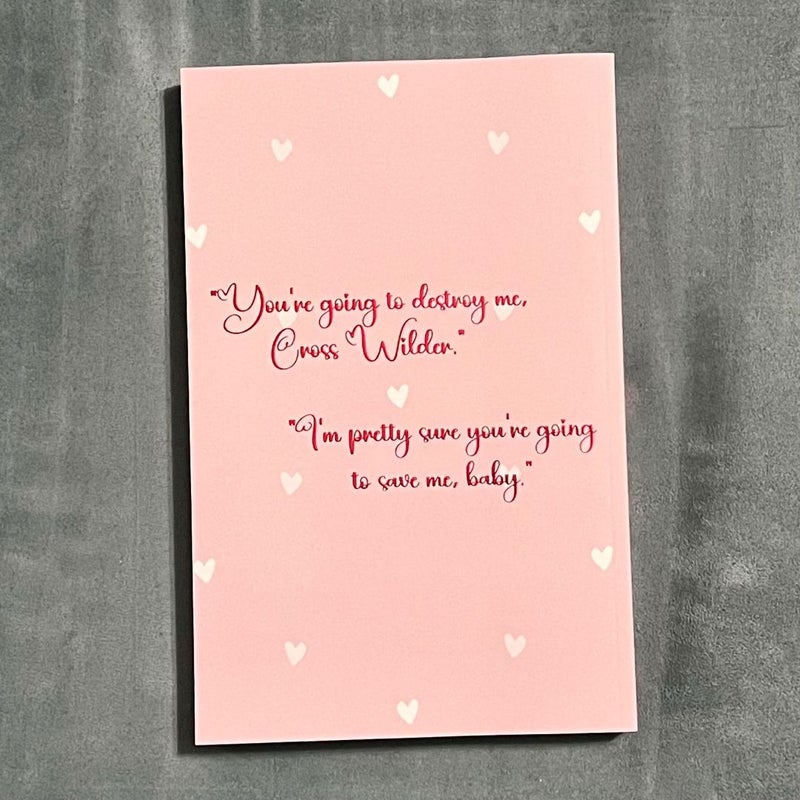 "You're going to destroy me,
Cross Wilder."
"I'm pretty sure you're going
to save me, baby."